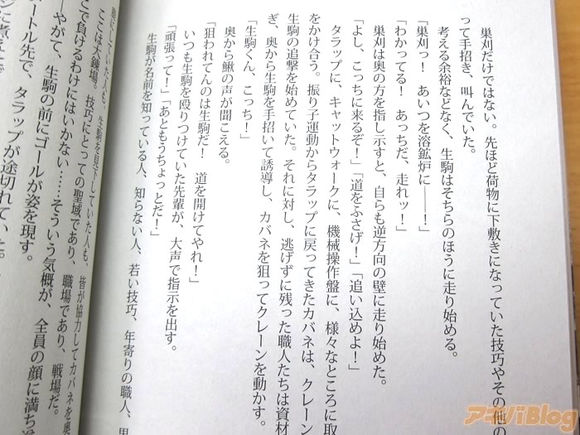 巣刈だけではない。先ほど荷物に下敷きになっていた技巧やその他の
って手招き、叫んでいた。
考える余裕などなく、生駒はそちらのほうに走り始める。
「巣刈っ！　あいつを溶鉱炉に――！」
「わかってる！　あっちだ、走れッ！」
巣刈は奥の方を指し示すと、自らも逆方向の壁に走り始めた。
「よし、こっちに来るぞ！」「道をふさげ！」「追い込めよ！」
タラップに、キャットウォークに、機械操作盤に、様々なところに取
をかけ合う。振り子運動からタラップに戻ってきたカバネは、クレーン
生駒の追撃を始めていた。それに対し、逃げずに残った職人たちは資材
ぎ、奥から生駒を手招いて誘導し、カバネを狙ってクレーンを動かす。
「生駒くん、こっち！」
奥から鰍の声が聞こえる。
「狙われてんのは生駒だ！　道を開けてやれ！」
いつも生駒を殴りつけていた先輩が、大声で指示を出す。
「頑張って！」「あともうちょっとだ！」
生駒が名前を知っている人、知らない人、若い技巧、年寄りの職人、男
していた人も、皆が協力してカバネを奥
ここは大鍾場。技巧にとっての聖域であり、職場であり、戦場だ。
こで負けるわけにはいかない……そういう気概が、全員の顔に満ち
――やがて、生駒の前にゴールが姿を現す。
ートル先で、タラップが途切れていた。
に煮えた
アキバBlog